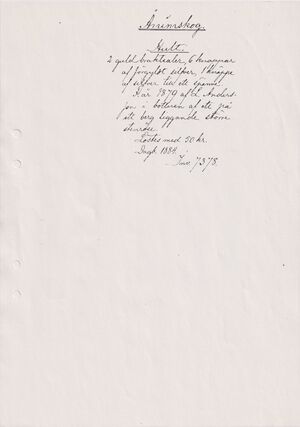 Ånimskog.
Hult.
2 guld brakteater, 6 knappar
af förgyldt silfver, 1 knäppe
af silfver till ett spänne.
H. år 1879 af L. Anders-
son i bottnen af ett på
ett berg liggande större
stenröse.
Löstes med 50 kr.
Ingk. 1884.
Inv. 7378.